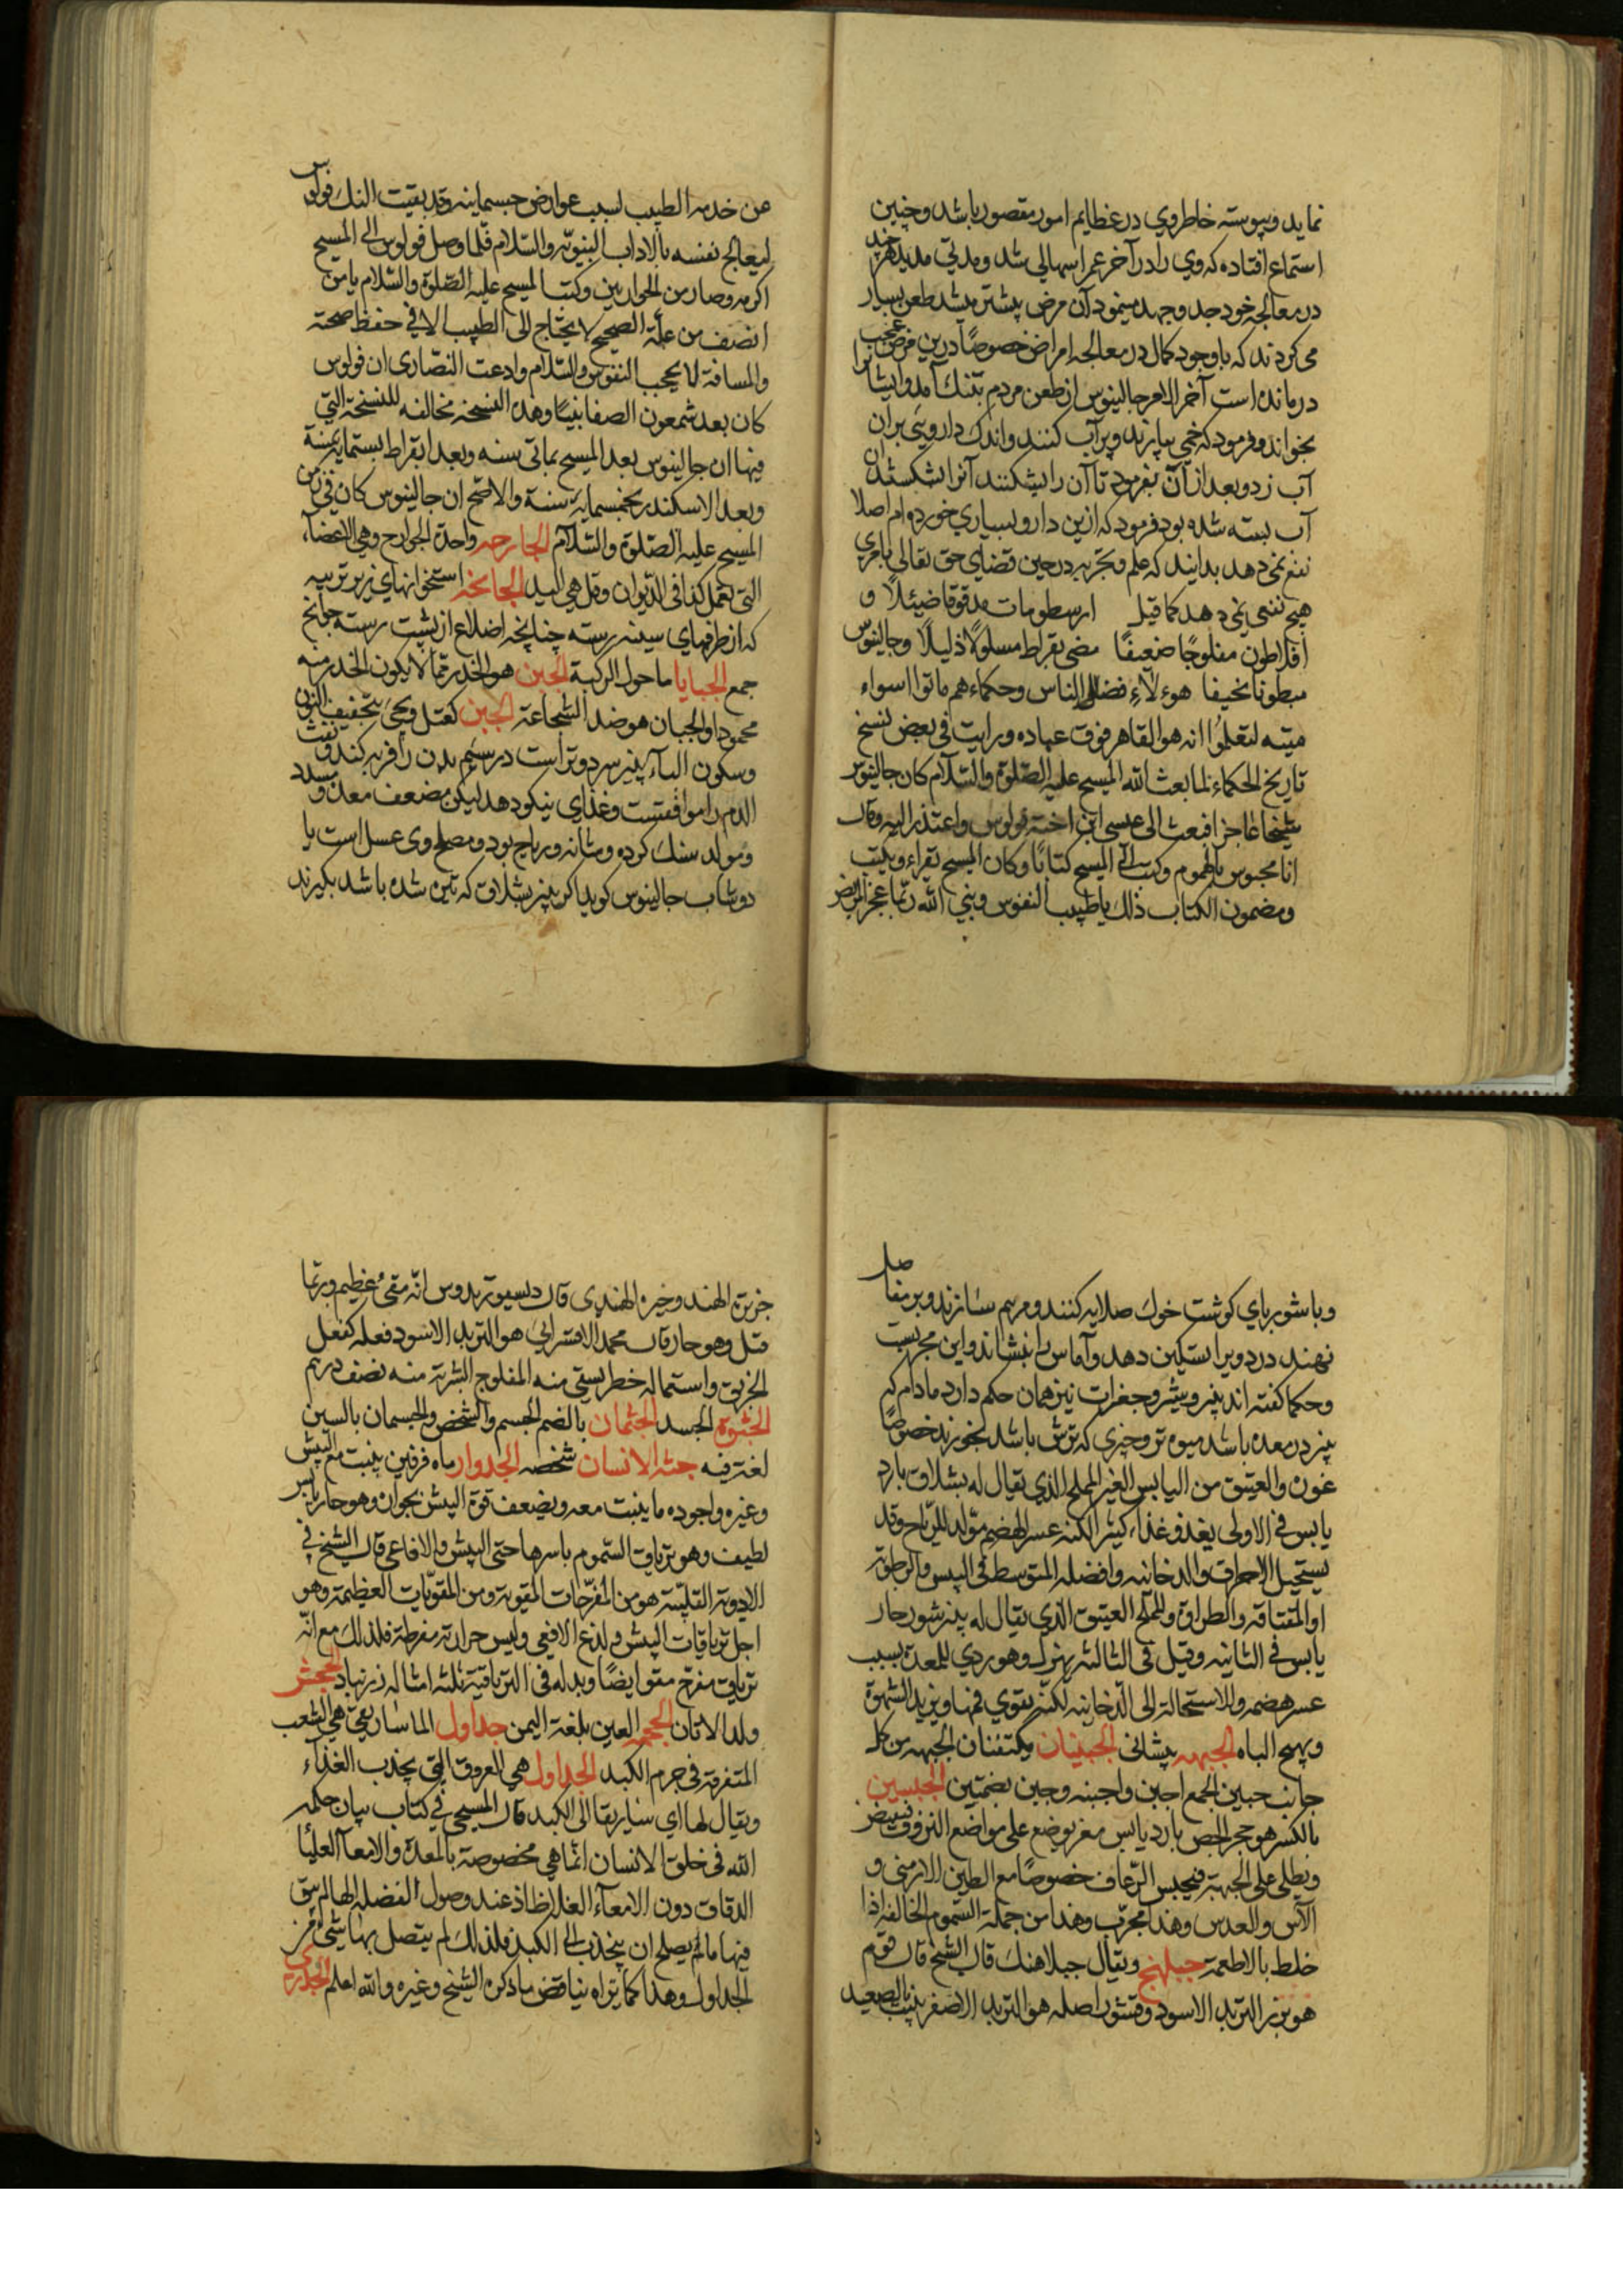 نمايد وپيوسته خاطروي در عظايم امور مقصور باشد وچنين
استماع افتاده كه وي را در آخر عمر اسهالي شد ومدتي مديد هرچند
در معالجه خود جد وجهد مينمود آن مرض بيشتر ميشد طعن بسيار
مي كردند كه باوجود كمال در معالجه امراض خصوصًا درين مرض عجب
درمانده است آخر الامر جالينوس از طعن مردم بتنك آمد وايشانرا
بخواند وفرمود كه خمي بيارند وپرآب كنند واندك دارويي بران
آب زد وبعد از آن بفرمود تا آن را بشكنند آنرا بشكستند آن
آب بسته شده بود فرمود كه ازين دارو بسياري خورده ام اصلا
نفع نمي دهد بدانيد كه علم وتجربه در حين قضاي حق تعالي بامري
هيچ نفعي نمي دهد كما قيل ارسطو مات مدقوقا ضئيلًا و
افلاطون مفلوجًا ضعيفًا مضى بقراط مسلولًا ذليلًا وجالينوس
مبطونا نحيفا هولاء فضلاء الناس وحكماءهم ماتوا اسواء
ميته لتعلموا انه هو القاهر فوق عباده ورايت في بعض نسخ
تاريخ الحكماء لما بعث الله المسيح عليه الصّلوة والسّلام كان جالينوس
شيخا عاجزا فبعث الى عيسى ابن اخته فولوس واعتذر اليه وقال
انا محبوس بالهموم وكتب الى المسيح كتابًا وكان المسيح يقراء ويكتب
ومضمون الكتاب ذلك ياطبيب النفوس ونبي الله ربّما عجز المريض
عن خدمة الطبيب لسبب عوارض جسمانيه وقد بعثت اليك فولوس
ليعالج نفسه بالاداب النبويّه والسّلام فلمّا وصل فولوس الى المسيح
اكرمه وصار من الحواريين وكتب المسيح عليه الصّلوة والسّلام يامن
انصف من علمه الصحيح لايحتاج الى الطبيب الا في حفظ صحته
والمسافة لا يحجب النفوس والسّلام وادعت النصارى ان فولوس
كان بعد شمعون الصفا نبيًا وهذه النسخه مخالفه للنسخة التي
فيها ان جالينوس بعد المسيح بمائتي سنه وبعد ابقراط بستمايه سنة
وبعد الاسكندر بخمسمايه سنة والاصحّ ان جالينوس كان في زمن
المسيح عليه الصّلوة والسّلام الجارحه واحدة الجوارح وهي الاعضاء
التي تعمل كذا في الدّيوان وقيل هي اليد الجانحه استخوانهاي زير تريبه
كه از طرفهاي سينه رسته چنانچه اضلاع از پشت رسته جوانح
جمع الجبايا ما حول الركبة الجبن هو الخدر ربّما لا يكون الخدر منه
محمودا والجبان هو ضد الشجاعة الجبن كعتل ويجئ بتخفيف النون
وسكون الباء پنير سرد وتر است در سيّم بدن را فربه كند ونفث
الدم را موافقست وغذاي نيكو دهد ليكن مضعف معده و سدد
ومولد سنك كرده ومثانه ورياح بود ومصلح وي عسل است يا
دوشاب جالينوس كويد اكر پنير بشلاق كه تيره شده باشد بكيرند
وباشورباي كوشت خوك صلايه كنند ومرهم سازند وبر مفاصل
نهند درد ويرا تسكين دهد وآماس را بنشاند واين مجربست
وحكما كفته اند پنير وشير وجغرات نيز همان حكم دارد مادام كه
پنير در معده باشد ميوه تر وچيزي كه ترش باشد نخورند خصوصًا
غوره والعتيق من اليابس الغير المملح الذي يقال له بشلاق بارد
يابس في الاولى يغذو غذاء كثير لكنه عسر الهضم مولد للرياح وقد
يستحيل الى الاحتراق والدخانيه وافضله المتوسط في اليبس والرطوبة
او الهشاشة والطراوة والمملح العتيق الذي يقال له پنير شور حار
يابس في الثانيه وقيل في الثالثه يهزل وهو ردي للمعدة بسبب
عسر هضمه والاستحالة الى الدّخانيه لكنّه يقوي فمها ويزيد الشهوة
ويهيج الباه الجبهه پيشاني الجبينان يكتنفان الجبهه من كل
جانب جبين الجمع اجبن واجبنه وجبن بضمتين الجبسين
بالكسر هو حجر الجص بارد يابس مغر يوضع على مواضع النزوف نفيض
ويطلى على الجبهة فيحبس الرّعاف خصوصًا مع الطين الارمني و
الآس والعدس وهذا مجرّب وهذا من جملة السّموم الخالصه اذا
خلط بالاطعمة جبلهنج ويقال جبلاهنك قال الشيخ قال قوم
هو بزر التربد الاسود وقشور اصله هو التربد الاصفر ينبت بالصعيد
خربق الهند وخيره الهندي قال ديسقوريدوس انّه مقيء عظيم وربّما
قتل وهو حار قال محمد الاقسرائي هو التربد الاسود فعله كفعل
الخربق واستعماله خطر يسقى منه المفلوج الشربة منه نصف درهم
الجثوة الجسد الجثمان بالضم الجسم والشخص والجسمان بالسين
لغة فيه جثه الانسان شخصه الجدوار ماه فرفين ينبت مع البيش
وغيره واجوده ما ينبت معه ويضعف قوة البيش بجواره وهو حار يابس
لطيف وهو ترياق السّموم باسرها حتى البيش والافاعي قال الشيخ في
الادوية القلبيّة هو من المفرّحات المقوية ومن المقوّيات العظيمة وهو
اجل ترياقات البيش ولذع الافعى وليس حرارته مفرطة فلذلك مع انّه
ترياق مفرّح مقو ايضًا وبدله في الترياقية ثلثه امثاله زرنباد الجحش
ولد الاتان الجحمه العين بلغة اليمن جداول الماساريقي هي الشعب
المتفرقة في جرم الكبد الجداول هي العروق التي يجذب الغذاء
ويقال لها اي ساريقا الى الكبد قال المسيحي في كتاب بيان حكمه
الله في خلق الانسان انّما هي مخصوصة بالمعدة والامعاء العليا
الدقاق دون الامعاء الغلاظ اذ عند وصول الفضله اليها لم يبق
فيها ما لم يصلح ان ينجذب الى الكبد فلذلك لم يتصل بها شيء من
الجداول وهذا كما تراه يناقض ما ذكره الشيخ وغيره والله اعلم الجدري